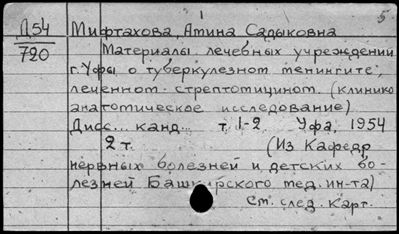 1
5
Д54 Мифтахова, Амина Садыковна
720
Материалы лечебных учреждений
г. Уфы о туберкулезном менингите,
леченном стрептомицином. (клинико
анатомическое исследование)
Дисс... канд... т. 1-2. Уфа, 1954
2 т. (Из Кафедр
нервных болезней и детских бо-
лезней Башкирского мед. ин-та)
См. след. карт.